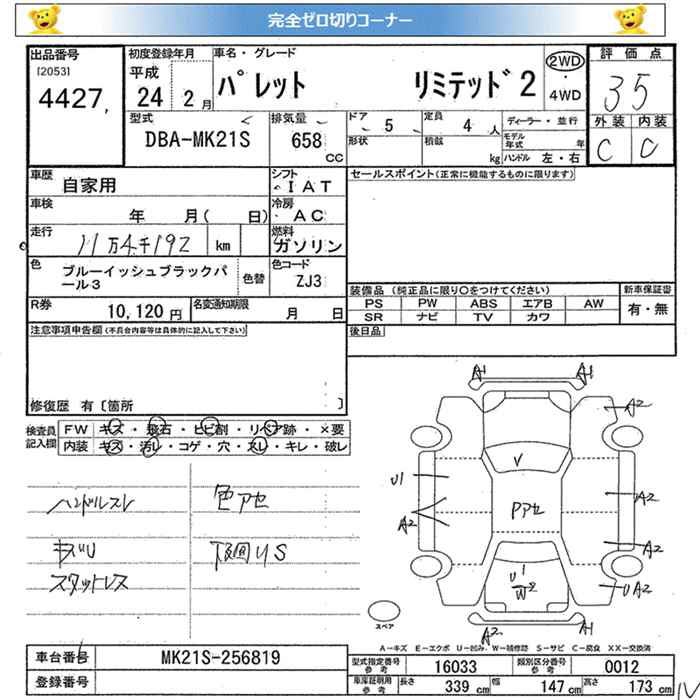 完全ゼロ切りコーナー
出品番号
[2053]
4427
初度登録年月
平成
24 2月
車名・グレード
パレット リミテッド2
2WD
・
4WD
評価点
35
外装 内装
C C
型式
DBA-MK21S
排気量
658
CC
ドア
5
形状
定員
4人
積載
kg
ディーラー・並行
モデル年式 年
ハンドル 左・右
車歴
自家用
シフト
IAT
車検
年 月( 日)
冷房
AC
走行
11万4千192 km
燃料
ガソリン
色
ブルーイッシュブラックパール3
色替
色コード
ZJ3
R券
10,120 円
名変通知期限
月 日
セールスポイント(正常に機能するものに限ります)
装備品 (純正品に限り○をつけてください)
PS PW ABS エアB AW
SR ナビ TV カワ
新車保証書
有・無
後日品
注意事項申告欄(不具合内容等は具体的に記入して下さい)
修復歴 有〔箇所 〕
検査員記入欄
FW キズ・飛石・ヒビ割・リペア跡・×要
内装 キズ・汚レ・コゲ・穴・スレ・キレ・破レ
ハンドルスレ
色アセ
キズU
下回りS
スタットレス
A1 A1
A2
V
U1
A2
Pアセ
A2
A2
U1
W2
UA2
A2
A1
スペア
A-キズ E-エクボ U-凹み W-補修跡 S-サビ C-腐食 XX-交換済
車台番号
MK21S-256819
登録番号
型式指定番号
参考
16033
類別区分番号
参考
0012
車庫証明用
参考
長さ 339 cm 幅 147 cm 高さ 173 cm